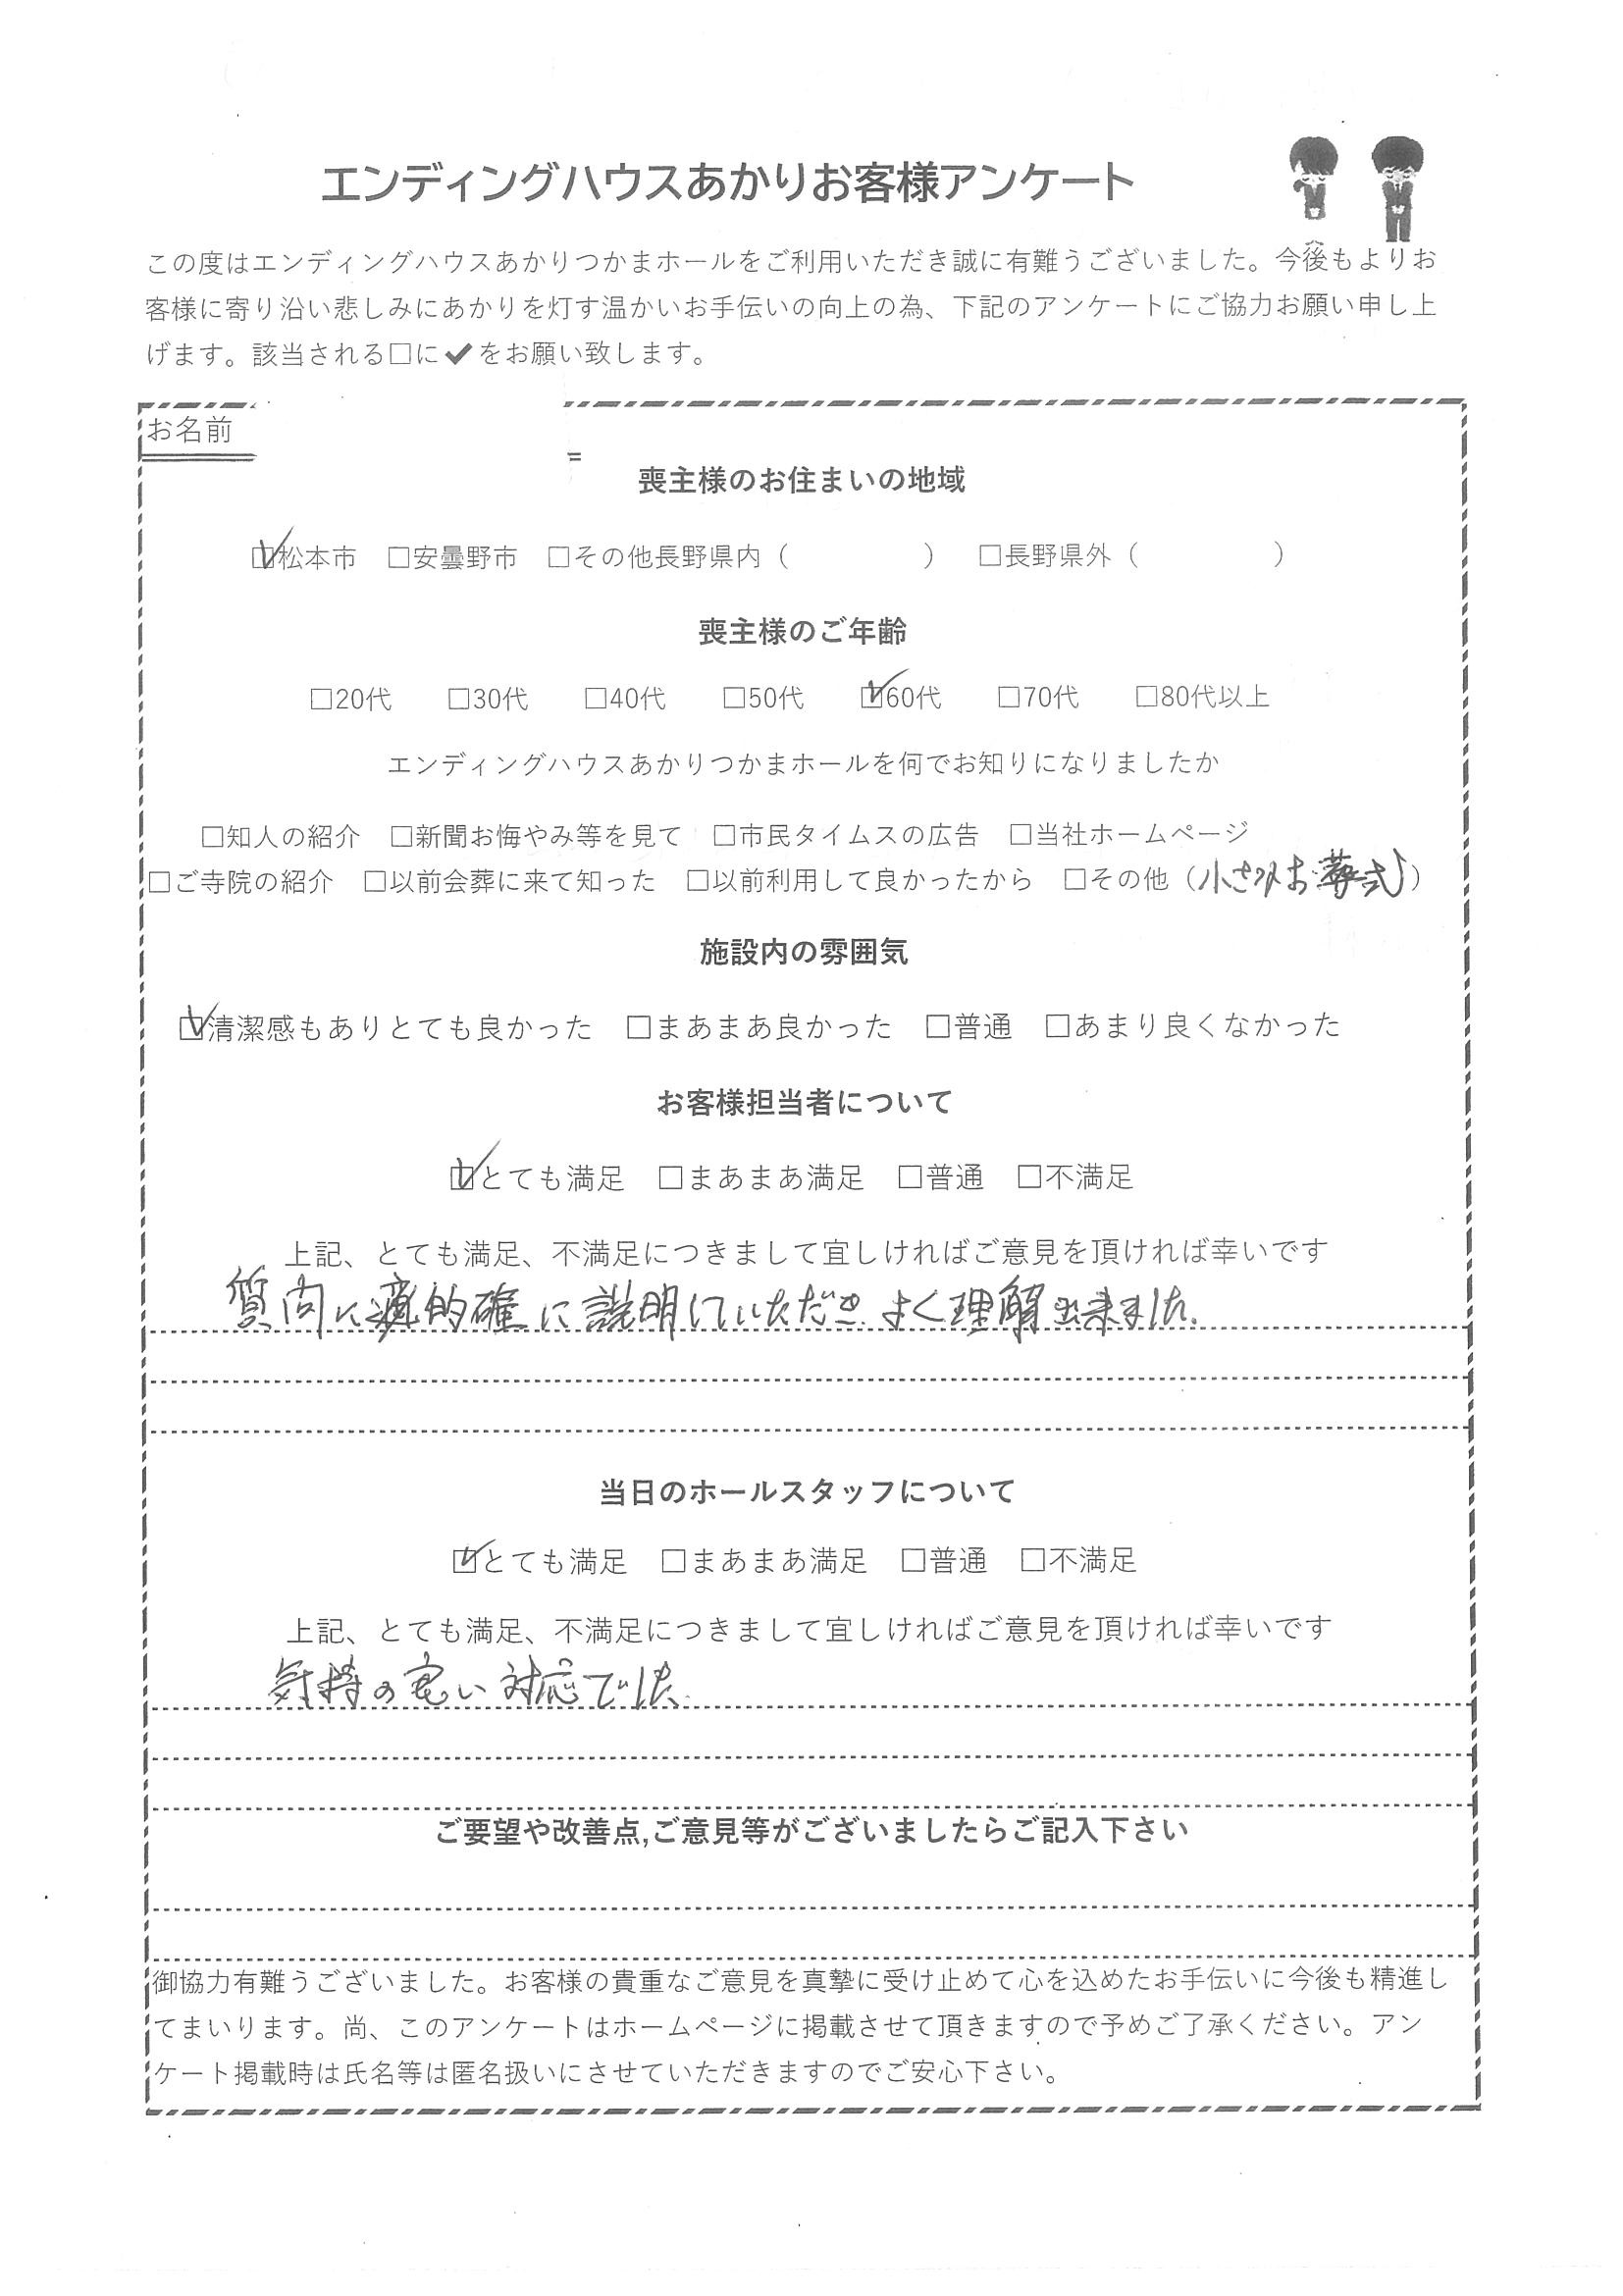 エンディングハウスあかりお客様アンケート
この度はエンディングハウスあかりつかまホールをご利用いただき誠に有難うございました。今後もよりお
客様に寄り沿い悲しみにあかりを灯す温かいお手伝いの向上の為、下記のアンケートにご協力お願い申し上
げます。該当される□に✔をお願い致します。
お名前
喪主様のお住まいの地域
☑松本市 □安曇野市 □その他長野県内（ ） □長野県外（ ）
喪主様のご年齢
□20代 □30代 □40代 □50代 ☑60代 □70代 □80代以上
エンディングハウスあかりつかまホールを何でお知りになりましたか
□知人の紹介 □新聞お悔やみ等を見て □市民タイムスの広告 □当社ホームページ
□ご寺院の紹介 □以前会葬に来て知った □以前利用して良かったから □その他（小さなお葬式）
施設内の雰囲気
☑清潔感もありとても良かった □まあまあ良かった □普通 □あまり良くなかった
お客様担当者について
☑とても満足 □まあまあ満足 □普通 □不満足
上記、とても満足、不満足につきまして宜しければご意見を頂ければ幸いです
質問に的確に説明していただき よく理解出来ました。
当日のホールスタッフについて
☑とても満足 □まあまあ満足 □普通 □不満足
上記、とても満足、不満足につきまして宜しければご意見を頂ければ幸いです
気持の良い対応でした。
ご要望や改善点,ご意見等がございましたらご記入下さい
御協力有難うございました。お客様の貴重なご意見を真摯に受け止めて心を込めたお手伝いに今後も精進し
てまいります。尚、このアンケートはホームページに掲載させて頂きますので予めご了承ください。アン
ケート掲載時は氏名等は匿名扱いにさせていただきますのでご安心下さい。